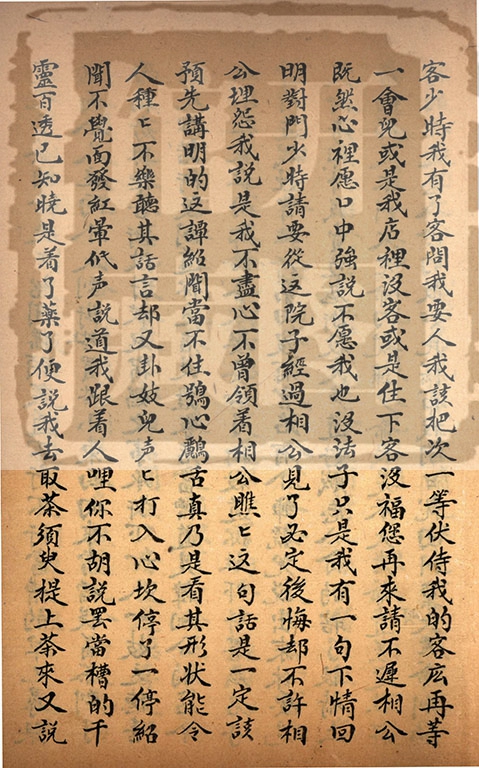 客少時我有了客問我要人我該把次一等伏侍我的客庅再等
一會兒或是我店裡沒客或是住下客沒福您再來請不遲相公
既然心裡愿口中強說不愿我也沒法子只是我有一句下情回
明對門少時請要從这院子經過相公見了必定後悔却不許相
公埋怨我說是我不盡心不曾領着相公瞧〻这句話是一定該
預先講明的这譚紹聞當不住鴞心鸝舌真乃是看其形狀能令
人種〻不樂聽其話言却又卦妓兒声〻打入心坎停了一停紹
聞不覺面發紅暈低声說道我跟着人哩你不胡說罢當槽的千
靈百透已知曉是着了藥了便說我去取茶須臾提上茶來又說